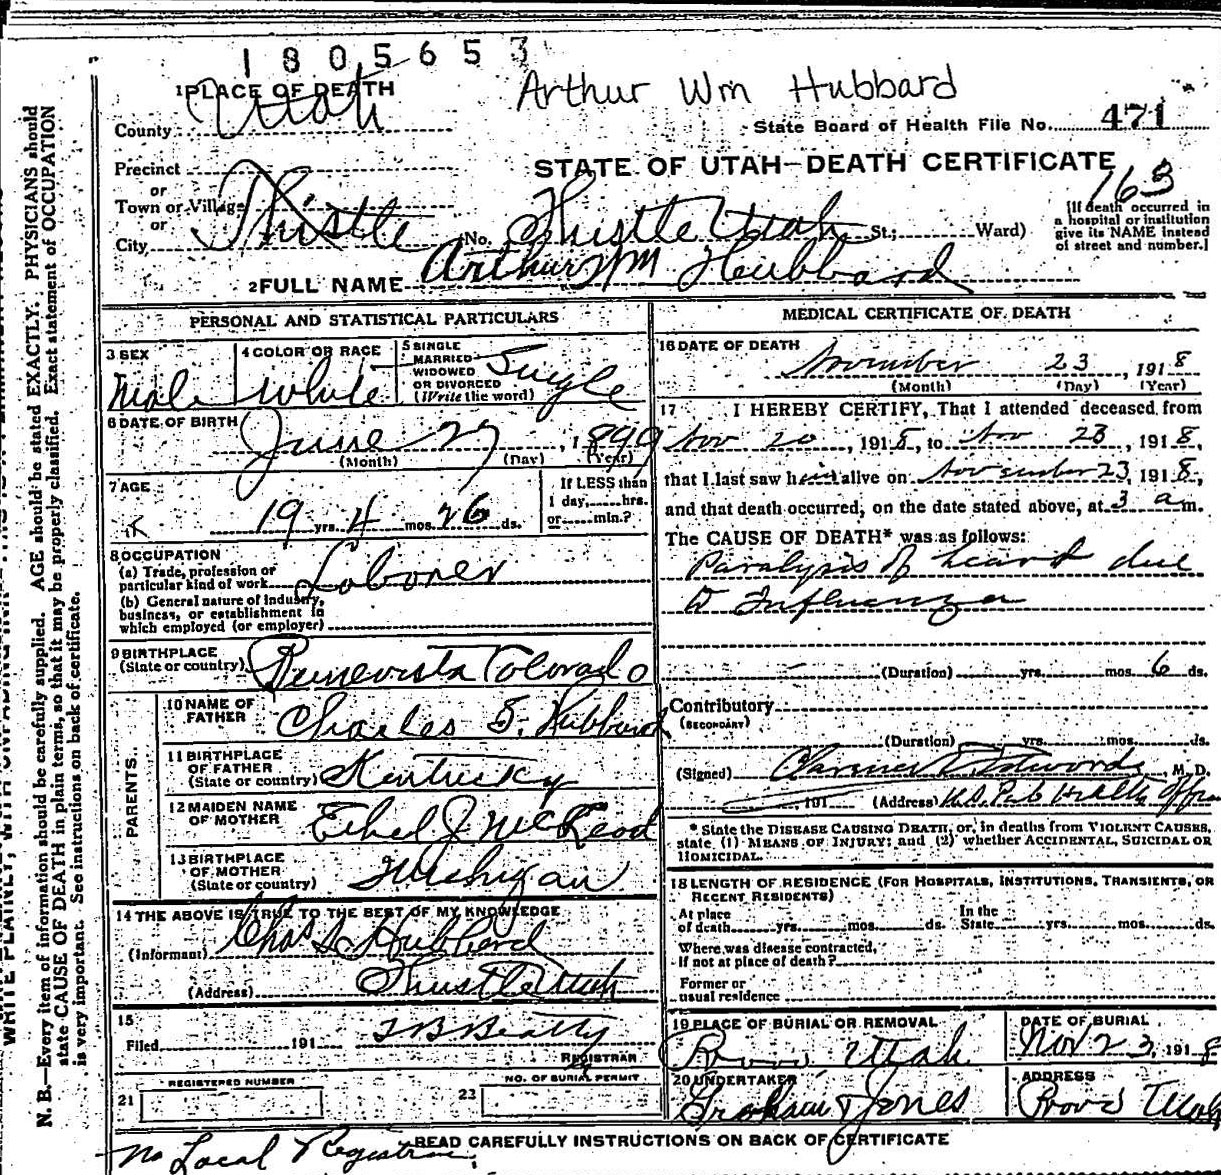 1805653
Arthur Wm Hubbard
1 PLACE OF DEATH
County Utah
State Board of Health File No. 471
Precinct
or
Town or Village
or
City Thistle
STATE OF UTAH—DEATH CERTIFICATE
163
No. Thistle Utah St.; Ward)
[If death occurred in
a hospital or institution
give its NAME instead
of street and number.]
2 FULL NAME Arthur Wm Hubbard
PERSONAL AND STATISTICAL PARTICULARS
3 SEX
Male
4 COLOR OR RACE
White
5 SINGLE
MARRIED
WIDOWED
OR DIVORCED
(Write the word)
Single
6 DATE OF BIRTH
June 27, 1899
(Month) (Day) (Year)
7 AGE
19 yrs. 4 mos. 26 ds.
If LESS than
1 day,......hrs.
or......min.?
8 OCCUPATION
(a) Trade, profession or
particular kind of work Laborer
(b) General nature of industry,
business, or establishment in
which employed (or employer)
9 BIRTHPLACE
(State or country) Colorado
PARENTS
10 NAME OF
FATHER Charles S. Hubbard
11 BIRTHPLACE
OF FATHER
(State or country) Kentucky
12 MAIDEN NAME
OF MOTHER Ethel J McLeod
13 BIRTHPLACE
OF MOTHER
(State or country) Michigan
14 THE ABOVE IS TRUE TO THE BEST OF MY KNOWLEDGE
(Informant) Chas S Hubbard
(Address) Thistle Utah
15
Filed 191 T B Beatty
REGISTRAR
REGISTERED NUMBER
21
NO. OF BURIAL PERMIT
22
MEDICAL CERTIFICATE OF DEATH
16 DATE OF DEATH
November 23, 1918
(Month) (Day) (Year)
17 I HEREBY CERTIFY, That I attended deceased from
Nov 20, 1918, to Nov 23, 1918,
that I last saw him alive on November 23, 1918,
and that death occurred, on the date stated above, at 3 a m.
The CAUSE OF DEATH* was as follows:
Paralysis of heart due
to Influenza
(Duration) yrs. mos. 6 ds.
Contributory
(SECONDARY)
(Duration) yrs. mos. ds.
(Signed) Edwards, M. D.
191 (Address) U.S. Pub Health
* State the DISEASE CAUSING DEATH, or, in deaths from VIOLENT CAUSES,
state (1) MEANS OF INJURY; and (2) whether ACCIDENTAL, SUICIDAL OR
HOMICIDAL.
18 LENGTH OF RESIDENCE (FOR HOSPITALS, INSTITUTIONS, TRANSIENTS, OR
RECENT RESIDENTS)
At place
of death yrs. mos. ds.
In the
State yrs. mos. ds.
Where was disease contracted,
If not at place of death?
Former or
usual residence
19 PLACE OF BURIAL OR REMOVAL
Provo, Utah
DATE OF BURIAL
Nov 23, 1918
20 UNDERTAKER
Graham & Jones
ADDRESS
Provo Utah
READ CAREFULLY INSTRUCTIONS ON BACK OF CERTIFICATE
No Local Registrar.
N. B.—Every item of information should be carefully supplied. AGE should be stated EXACTLY. PHYSICIANS should
state CAUSE OF DEATH in plain terms, so that it may be properly classified. Exact statement of OCCUPATION
is very important. See instructions on back of certificate.